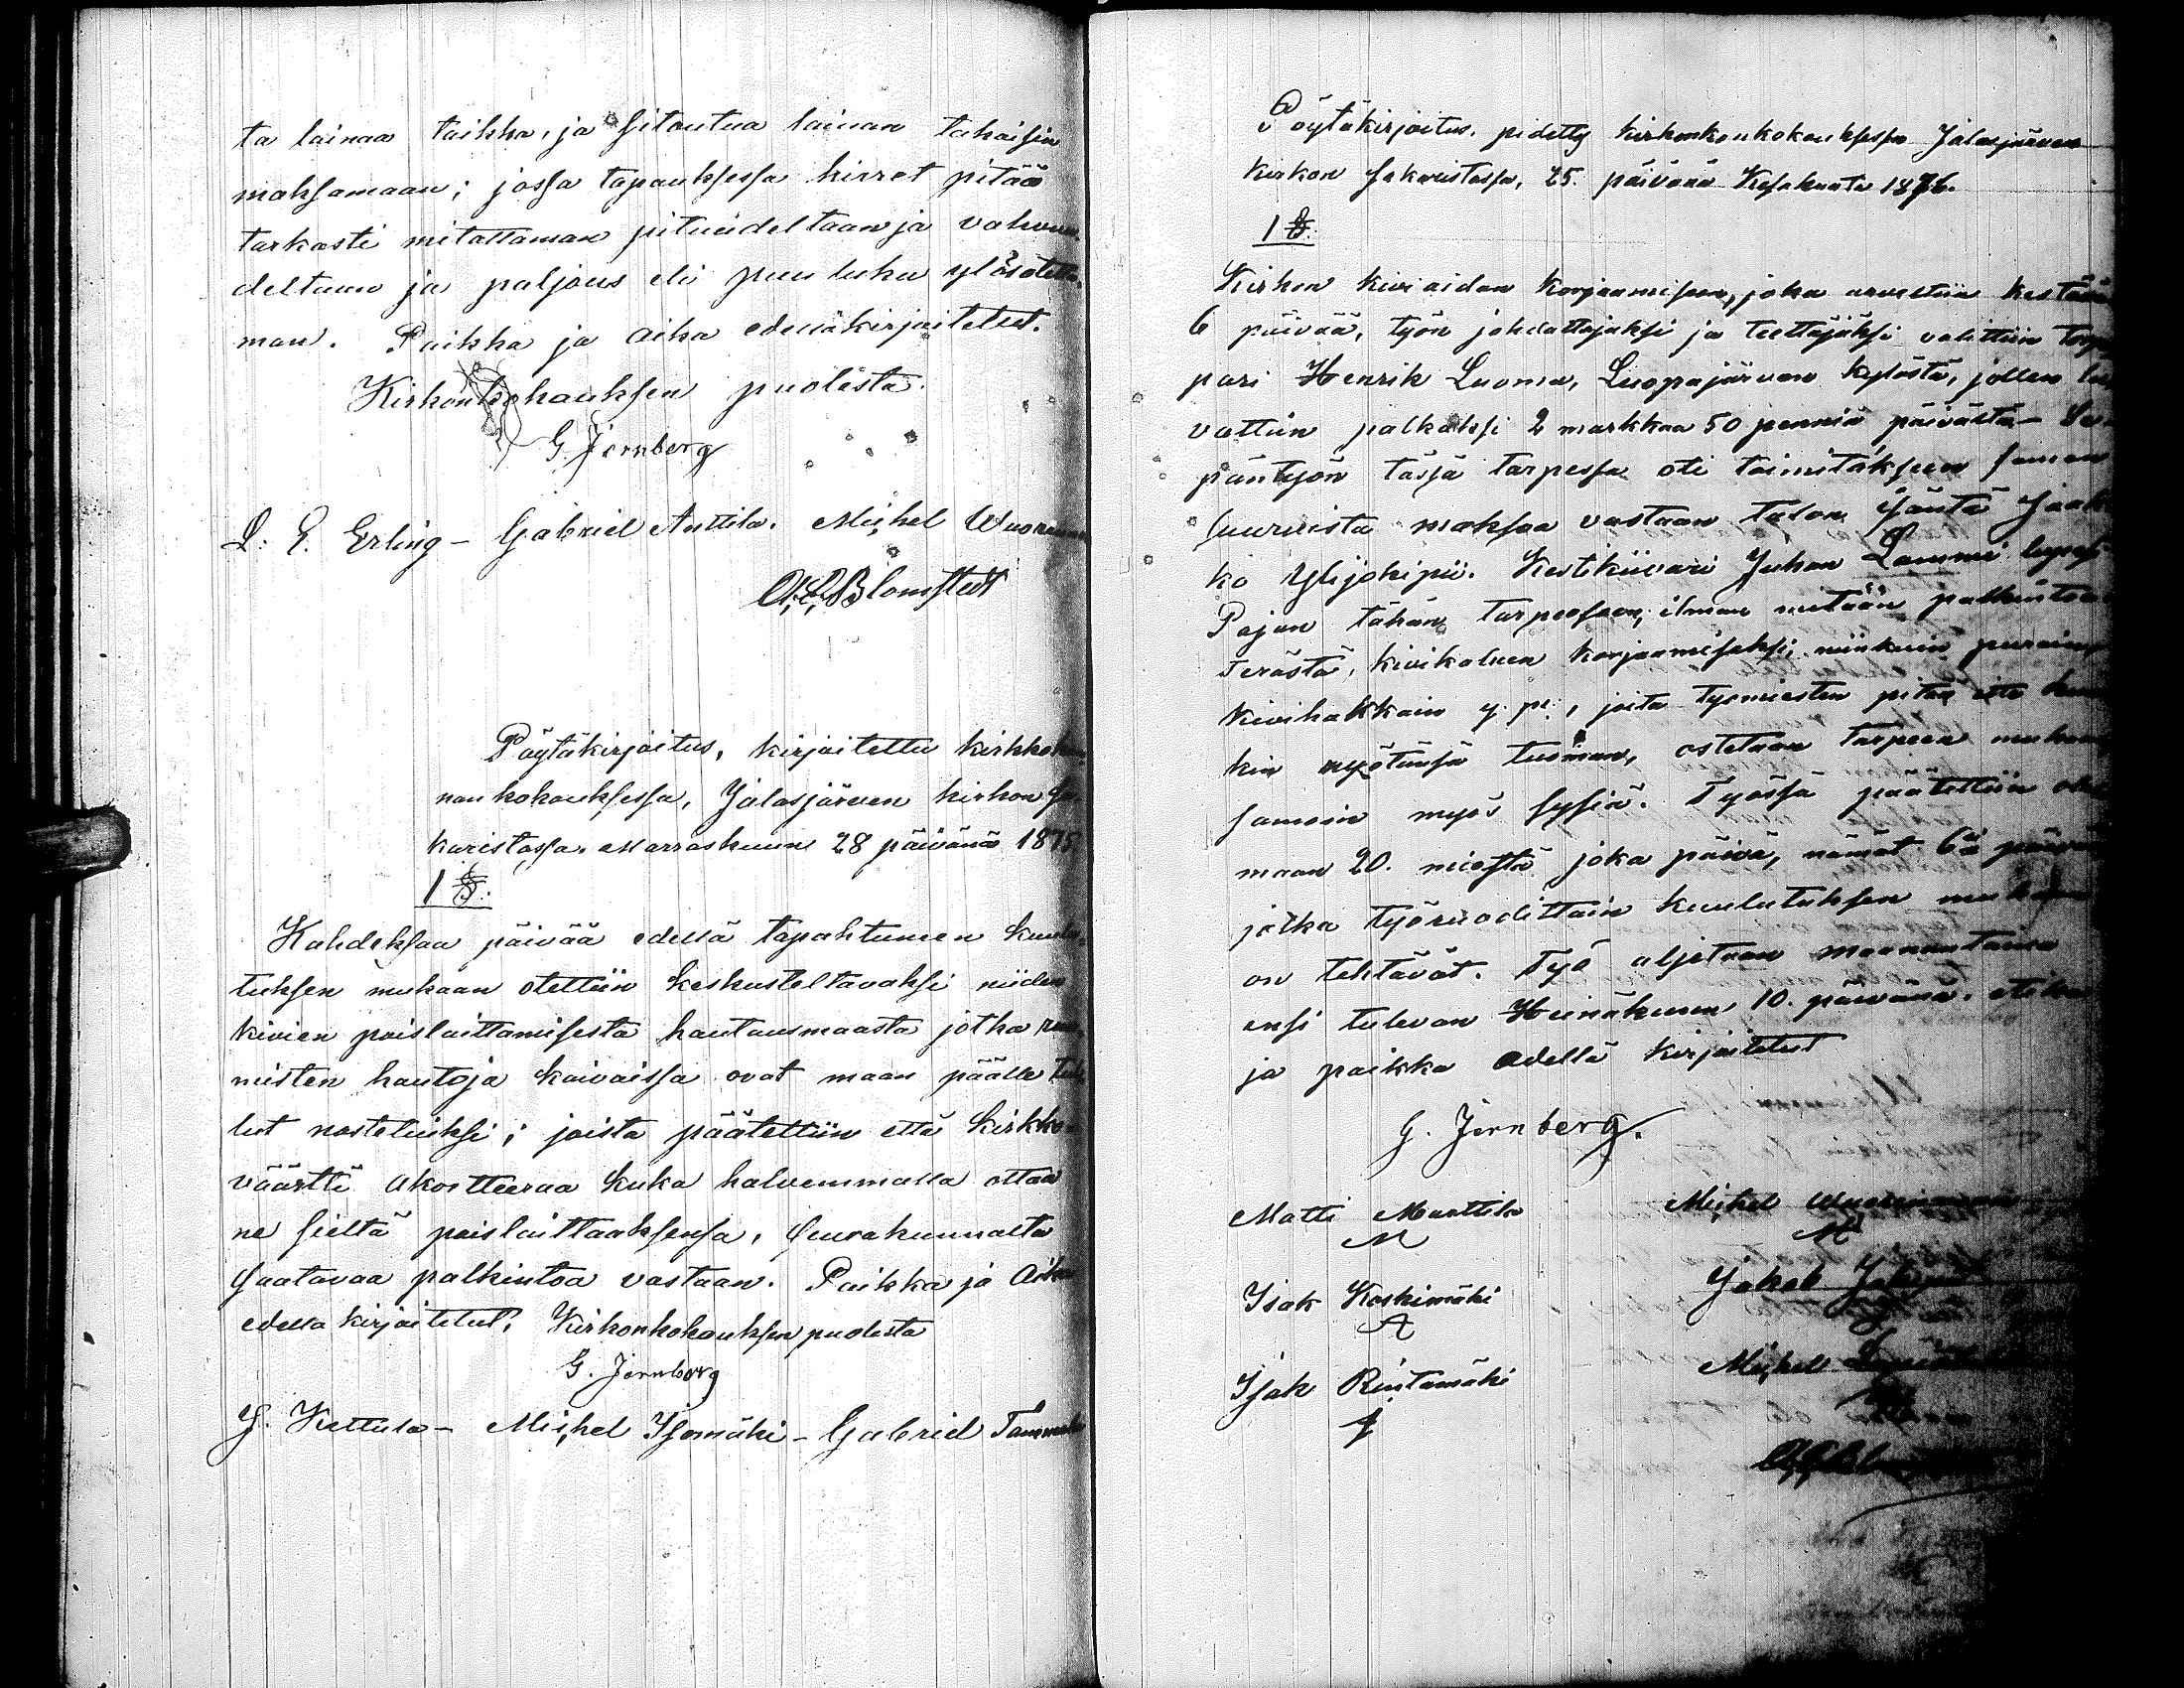 ta lainaa taikka, ja sitoutua lainan takaisin
maksamaan; jossa tapauksessa hirret pitää
tarkasti mitattaman pituudeltaan ja vahvuu-
deltaan ja paljous eli puu luku ylösotetta-
man. Paikka ja aika edelläkirjoitetut.
Kirkonkokouksen puolesta.
G. Jernberg
L. E. Erling - Gabriel Anttila. Michel
Blomstedt
Pöytäkirjoitus, kirjoitettu kirkko
nan kokouksessa, Jalasjärven kirkon Sa-
karistossa. Marraskuun 28 päivänä 1875
1 §:
Kahdeksaa päivää edellä tapahtuneen kuulu-
tuksen mukaan otettiin keskusteltavaksi niiden
kivien poislaittamisesta hautausmaasta jotka ruu-
misten hautoja kaivaissa ovat maan päälle tul-
lut nostetuiksi; joista päätettiin että kirkko-
väärtti akortteeraa kuka halvemmalla ottaa
ne sieltä poislaittaaksensa, Seurakunnalta
saatavaa palkintoa vastaan. Paikka ja Aika
edellä kirjoitetut. Kirkonkokouksen puolesta
G. Jernberg
J. Kettula - Michel Isomäki - Gabriel
Pöytäkirjoitus, pidetty kirkonkonkokouksessa Jalasjärven
kirkon sakaristossa, 25. päivänä Kesäkuuta 1876.
1 §:
Kirkon kiviaidan korjaamiseen, joka arveltiin kestävän
6 päivää, työn johdattajaksi ja teettäjäksi valittiin Torp-
pari Henrik Luoma, Luopajärven kylästä, jollen lu-
vattiin palkaksi 2 markkaa 50 penniä päivältä - Se-
päntyön tässä tarpessa oti toimitakseen saman
suuruista maksoa vastaan talon isäntä Jaak-
ko Ylijokipii. Kestikiivari Juhan Lammi lupasi
Pajan tähän tarpeeseen, ilman mitään palkintoa
Terästä, kivikaluen korjaamiseksi, niinkuin
kivihakkain y. m., joita työmiesten pitää itse
kin myötänsä tuoman, ostetaan tarpeen mukaan
samoin myös sysiä. Työssä päätettiin
maan 20. miestä joka päivä, nämät 6ä päivää
jotka työruodittain kuulutuksen mukaan
on tehtävät. Työ aljetaan maanantaina
ensi tulevan Heinäkuun 10. päivänä.
ja paikka edellä kirjoitetut
G. Jernberg.
Matti Marttila Michel
M M
Isak Koskimäki Jakob
Isak Rintamäki Michel